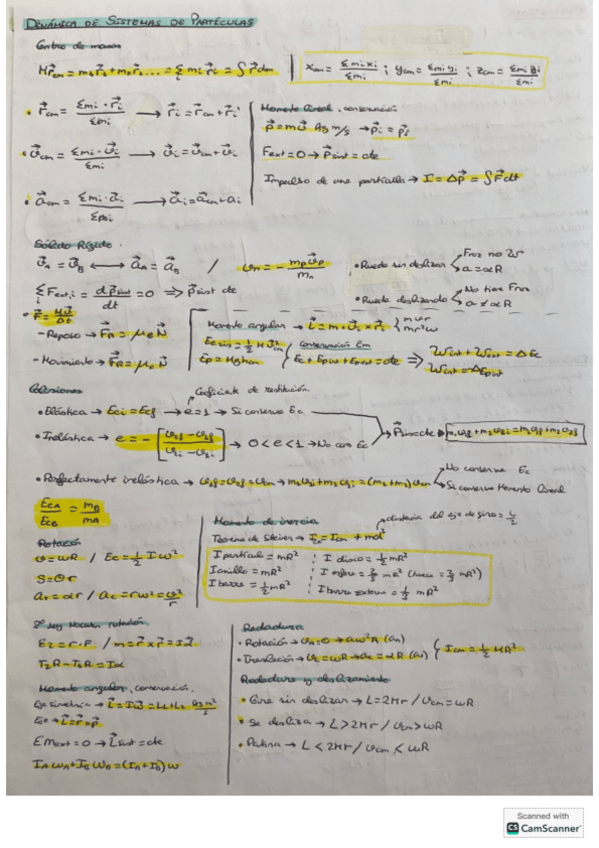 DINÁMICA DE SISTEMAS DE PARTÍCULAS
Centro de masas
M r⃗cm = m₁r⃗₁ + m₂r⃗₂ ... = Σ mi r⃗i = ∫ r⃗ dm
xcm = Σmi xi / Σmi ; ycm = Σmi yi / Σmi ; zcm = Σmi zi / Σmi
• r⃗cm = Σmi · r⃗i / Σmi → r⃗i = r⃗cm + r⃗i'
• v⃗cm = Σmi · v⃗i / Σmi → v⃗i = v⃗cm + v⃗i
• a⃗cm = Σmi · a⃗i / → a⃗i = a⃗cm + ai
Momento lineal, conservación
p⃗ = mv⃗ kg m/s → p⃗i = p⃗f
Fext = 0 → p⃗sist = cte
Impulso de una partícula → I = Δp⃗ = ∫ F⃗ dt
Sólido Rígido.
v⃗A = v⃗B ⟷ a⃗A = a⃗B /
Σ F⃗ext,i = dp⃗sist / dt = 0 ⇒ p⃗sist cte
• Rueda sin deslizar
Froz no W
a = αR
• Rueda deslizando
No tiene Froz
a ≠ αR
– Reposo → F⃗R = μe N⃗
– Movimiento → F⃗R = μc N⃗
Momento angular → L⃗ = m · v⃗ × r⃗
mvr
mr²w
Conservación Em
Ec + Epint + Epext = cte
Wext + Wint = ΔEc
Wint = -ΔEpint
Colisiones
Coeficiente de restitución
• Elástica → Eci = Ecf → e = 1 → Si conserva Ec
• Inelástica → e = - [v2f - v1f / v1i - v2i] → 0 < e < 1 → No cons Ec
P⃗sis cte
m₁v1i + m₂v2i = m₁v1f + m₂v2f
• Perfectamente inelástica → v1f = v2f = vcm → m₁v1i + m₂v2i = (m₁ + m₂) vcm
No conserva Ec
Si conserva Momento lineal
EcA / EcB = mB / mA
Rotación
v = wR / Ec = ½ I w²
S = Θr
at = αr / ac = rw² = v²/r
Momento de inercia
distancia del eje de giro = L/2
Teorema de Steiner → Ie = Icm + md²
I partícula = mR² ; I disco = ½ mR²
I anillo = mR² ; I esfera = ⅖ mR² (hueca = ⅔ mR²)
I barra extremo = ⅓ mR²
2ª ley Newton rotación
T₂R - T₁R = Iα
Momento angular, conservación.
ΣMext = 0 → L⃗sist = cte
IA wA + IB wB = (IA + IB) w
Rodadura
Icm = ½ MR²
Rodadura y deslizamiento
• Gira sin deslizar → L = 2πr / vcm = wR
• Se desliza → L > 2πr / vcm > wR
• Patina → L < 2πr / vcm < wR
Scanned with
CS CamScanner